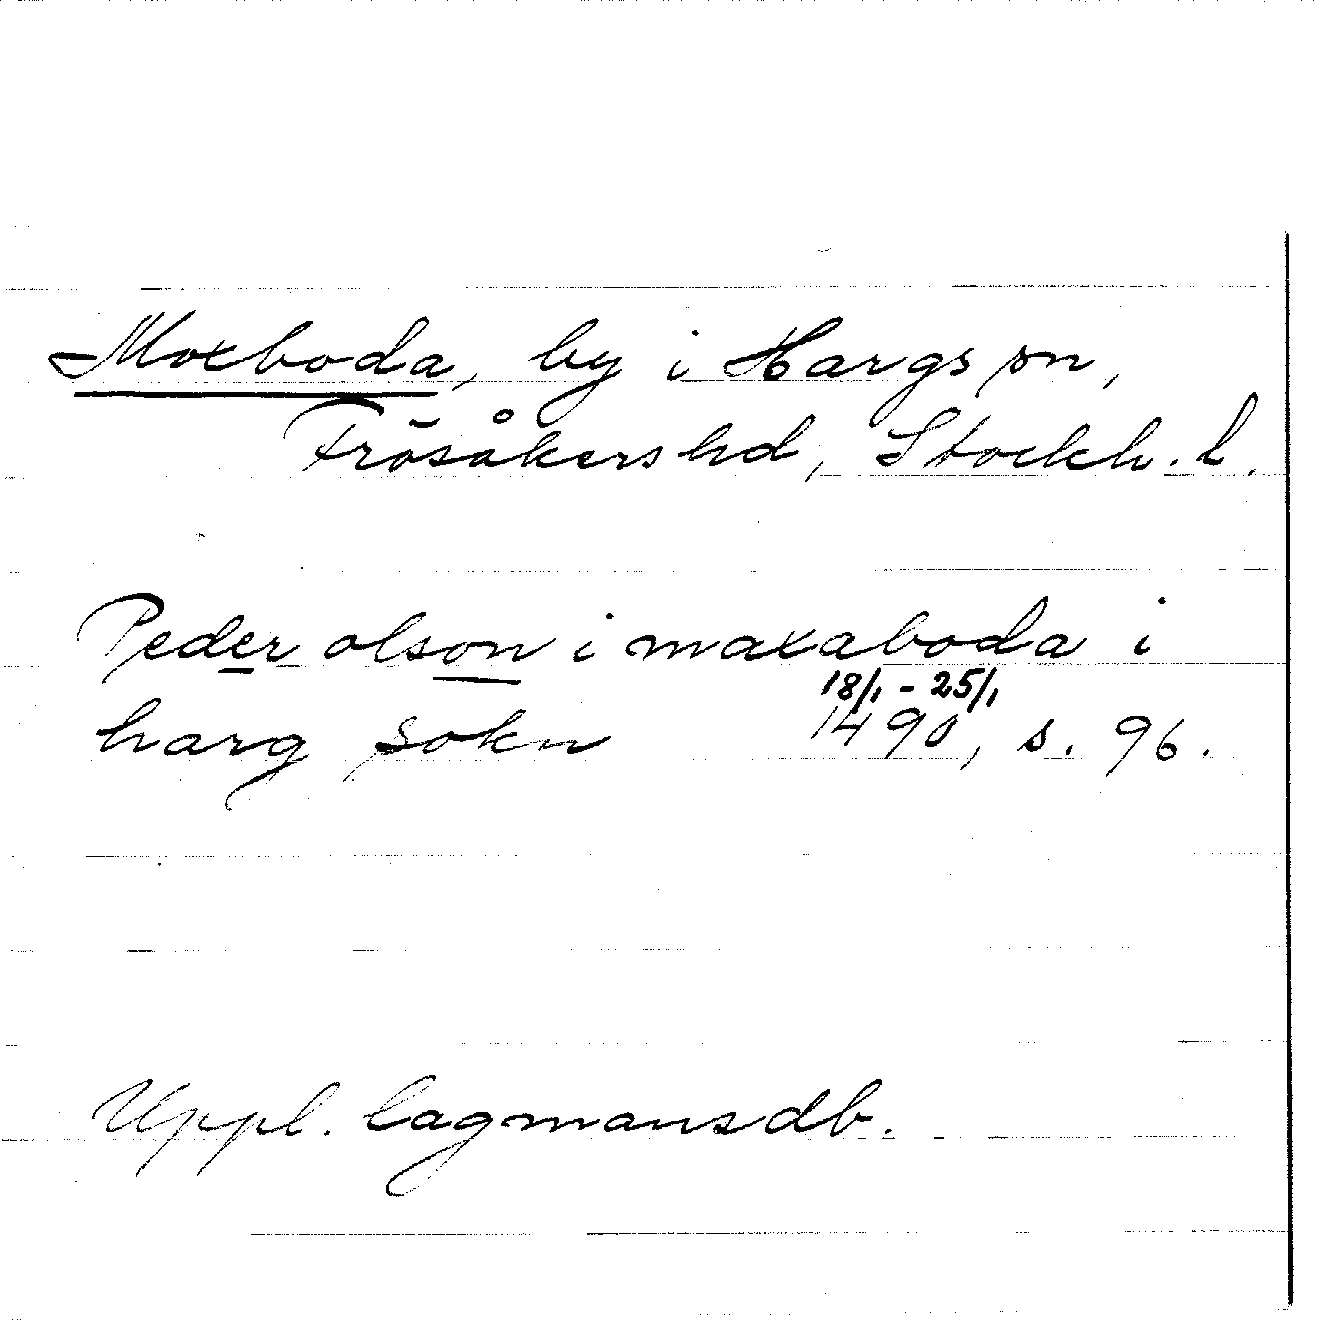 Moxboda, by i Hargs sn,
Frösåkers hd, Stockh. l.
Peder olson i maxaboda i
18/1 - 25/1
harg sokn 1490, s. 96.
Uppl. lagmansdb.